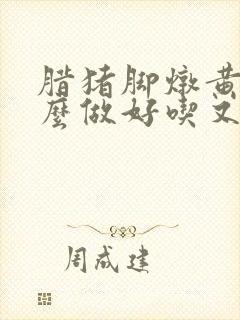 腊猪脚燉黄
麼做好喫又
周成建